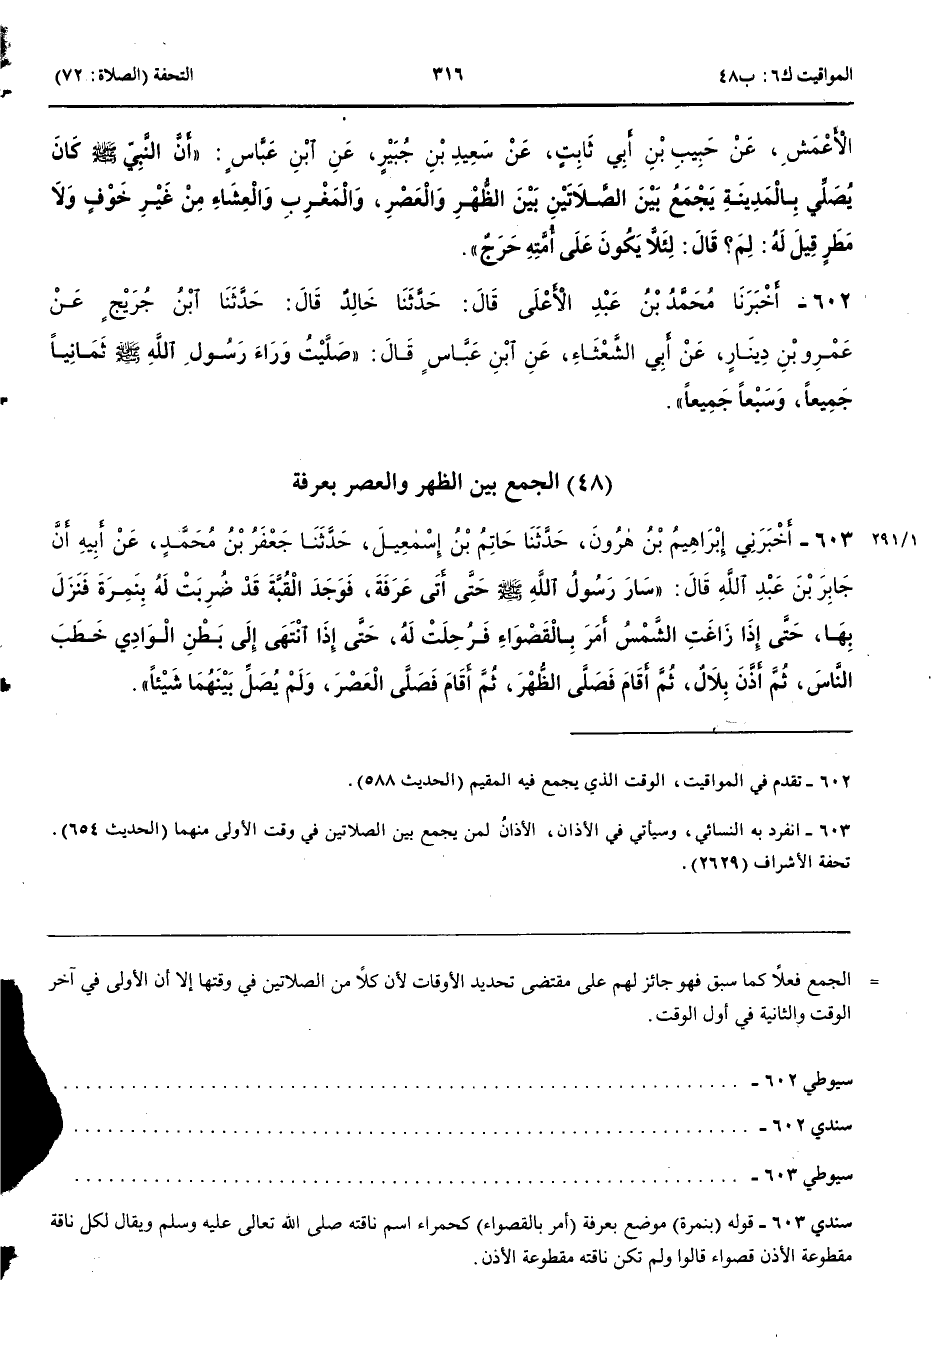 المواقيت ك٦: ب٤٨ ٣١٦ التحفة (الصلاة: ٧٢)
الْأَعْمَشِ، عَنْ حَبِيبِ بْنِ أَبِي ثَابِتٍ، عَنْ سَعِيدِ بْنِ جُبَيْرٍ، عَنِ ابْنِ عَبَّاسٍ: «أَنَّ النَّبِيَّ ﷺ كَانَ
يُصَلِّي بِالْمَدِينَةِ يَجْمَعُ بَيْنَ الصَّلَاتَيْنِ بَيْنَ الظُّهْرِ وَالْعَصْرِ، وَالْمَغْرِبِ وَالْعِشَاءِ مِنْ غَيْرِ خَوْفٍ وَلَا
مَطَرٍ قِيلَ لَهُ: لِمَ؟ قَالَ: لِئَلَّا يَكُونَ عَلَى أُمَّتِهِ حَرَجٌ».
٦٠٢ - أَخْبَرَنَا مُحَمَّدُ بْنُ عَبْدِ الْأَعْلَى قَالَ: حَدَّثَنَا خَالِدٌ قَالَ: حَدَّثَنَا ابْنُ جُرَيْجٍ عَنْ
عَمْرِو بْنِ دِينَارٍ، عَنْ أَبِي الشَّعْثَاءِ، عَنِ ابْنِ عَبَّاسٍ قَالَ: «صَلَّيْتُ وَرَاءَ رَسُولِ اللَّهِ ﷺ ثَمَانِياً
جَمِيعاً، وَسَبْعاً جَمِيعاً».
(٤٨) الجمع بين الظهر والعصر بعرفة
٢٩١/١ ٦٠٣ - أَخْبَرَنِي إِبْرَاهِيمُ بْنُ هٰرُونَ، حَدَّثَنَا حَاتِمُ بْنُ إِسْمٰعِيلَ، حَدَّثَنَا جَعْفَرُ بْنُ مُحَمَّدٍ، عَنْ أَبِيهِ أَنَّ
جَابِرَ بْنَ عَبْدِ اللَّهِ قَالَ: «سَارَ رَسُولُ اللَّهِ ﷺ حَتَّى أَتَى عَرَفَةَ، فَوَجَدَ الْقُبَّةَ قَدْ ضُرِبَتْ لَهُ بِنَمِرَةَ فَنَزَلَ
بِهَا، حَتَّى إِذَا زَاغَتِ الشَّمْسُ أَمَرَ بِالْقَصْوَاءِ فَرُحِلَتْ لَهُ، حَتَّى إِذَا انْتَهَى إِلَى بَطْنِ الْوَادِي خَطَبَ
النَّاسَ، ثُمَّ أَذَّنَ بِلَالٌ، ثُمَّ أَقَامَ فَصَلَّى الظُّهْرَ، ثُمَّ أَقَامَ فَصَلَّى الْعَصْرَ، وَلَمْ يُصَلِّ بَيْنَهُمَا شَيْئاً».
٦٠٢ - تقدم في المواقيت، الوقت الذي يجمع فيه المقيم (الحديث ٥٨٨).
٦٠٣ - انفرد به النسائي، وسيأتي في الأذان، الأذانُ لمن يجمع بين الصلاتين في وقت الأولى منهما (الحديث ٦٥٤).
تحفة الأشراف (٢٦٢٩).
= الجمع فعلًا كما سبق فهو جائز لهم على مقتضى تحديد الأوقات لأن كلًا من الصلاتين في وقتها إلا أن الأولى في آخر
الوقت والثانية في أول الوقت.
سيوطي ٦٠٢ - . . . . . . . . . . . . . . . . . . . .
سندي ٦٠٢ - . . . . . . . . . . . . . . . . . . . .
سيوطي ٦٠٣ - . . . . . . . . . . . . . . . . . . . .
سندي ٦٠٣ - قوله (بنمرة) موضع بعرفة (أمر بالقصواء) كحمراء اسم ناقته صلى الله تعالى عليه وسلم ويقال لكل ناقة
مقطوعة الأذن قصواء قالوا ولم تكن ناقته مقطوعة الأذن.